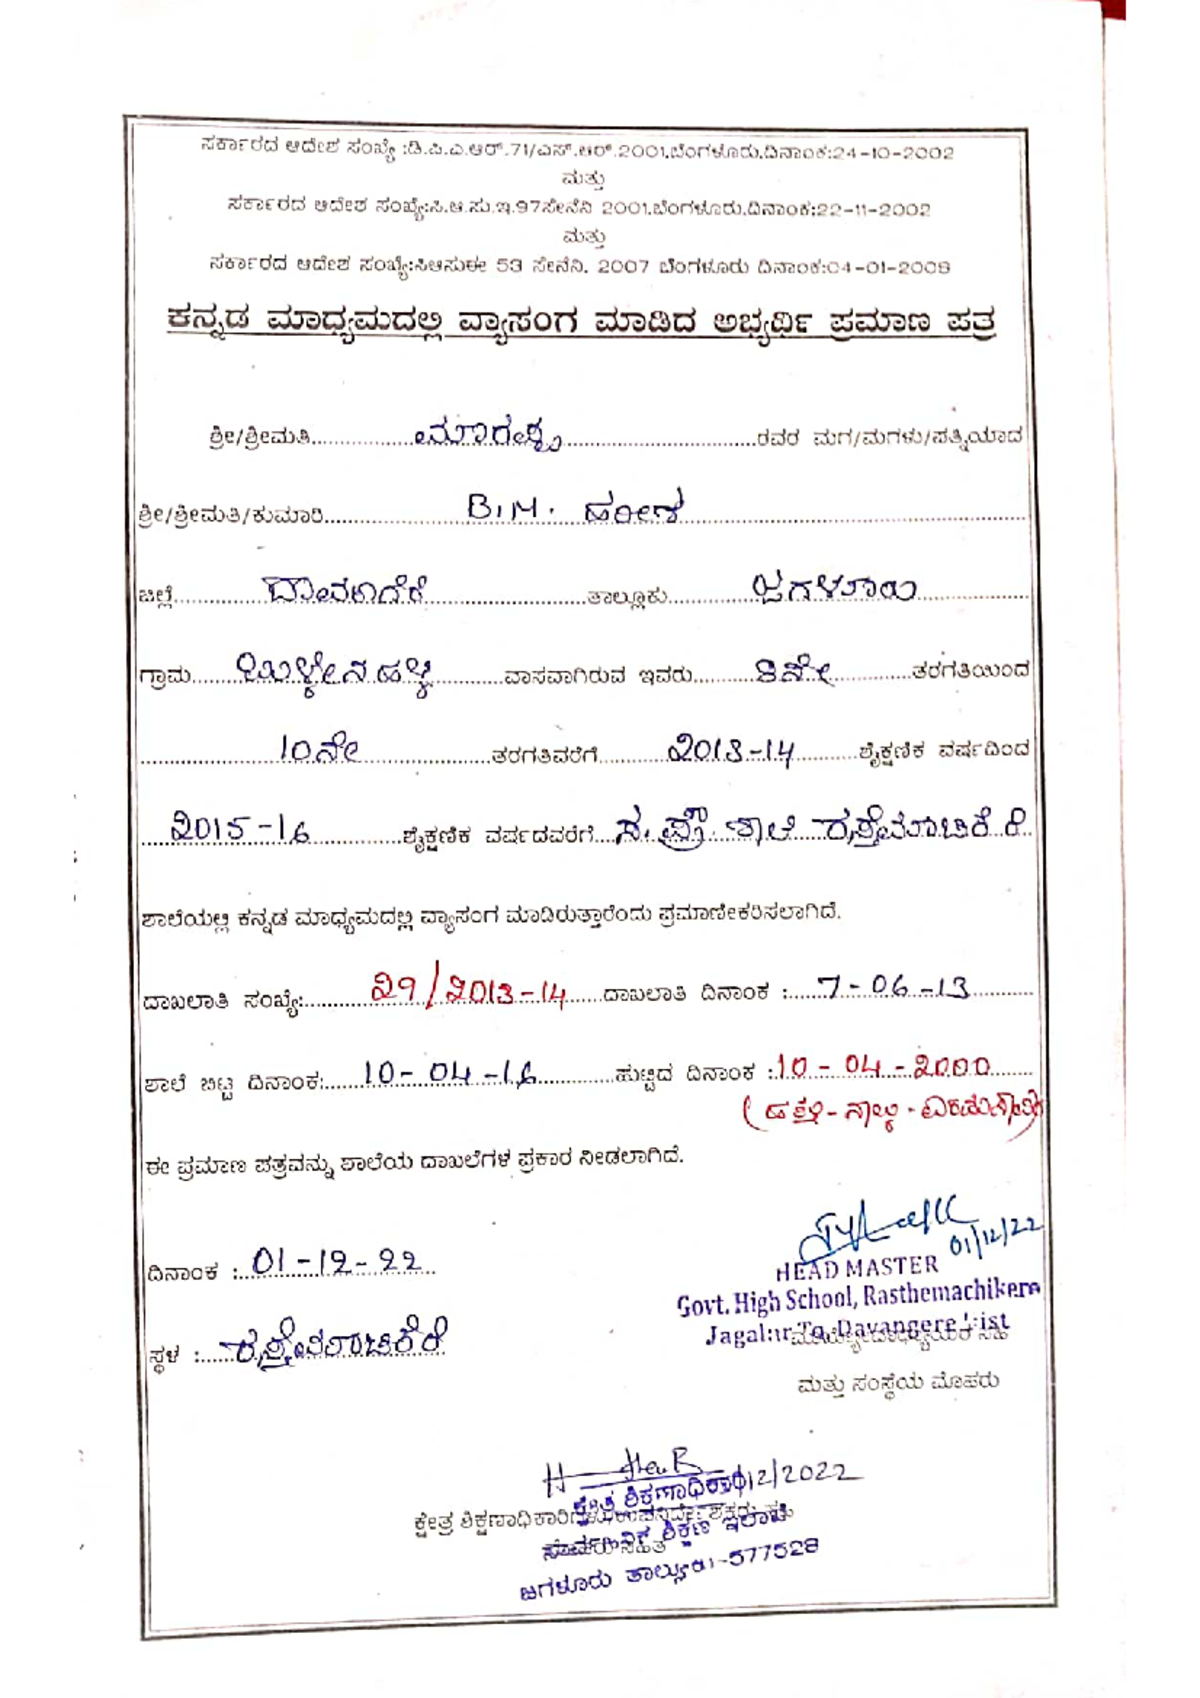 ಸರ್ಕಾರದ ಆದೇಶ ಸಂಖ್ಯೆ :ಡಿ.ಪಿ.ಎ.ಆರ್.71/ಎಸ್.ಆರ್.2001,ಬೆಂಗಳೂರು,ದಿನಾಂಕ:24-10-2002
ಮತ್ತು
ಸರ್ಕಾರದ ಆದೇಶ ಸಂಖ್ಯೆ:ಸಿ.ಆ.ಸು.ಇ.97ಸೇನೆನಿ 2001,ಬೆಂಗಳೂರು,ದಿನಾಂಕ:22-11-2002
ಮತ್ತು
ಸರ್ಕಾರದ ಆದೇಶ ಸಂಖ್ಯೆ:ಸಿಆಸುಈ 53 ಸೇನೆನಿ. 2007 ಬೆಂಗಳೂರು ದಿನಾಂಕ:04-01-2008
ಕನ್ನಡ ಮಾಧ್ಯಮದಲ್ಲಿ ವ್ಯಾಸಂಗ ಮಾಡಿದ ಅಭ್ಯರ್ಥಿ ಪ್ರಮಾಣ ಪತ್ರ
ಶ್ರೀ/ಶ್ರೀಮತಿ..........ರವರ ಮಗ/ಮಗಳು/ಪತ್ನಿಯಾದ
ಶ್ರೀ/ಶ್ರೀಮತಿ/ಕುಮಾರಿ.....B.M. ಹರೀಶ.....
ಜಿಲ್ಲೆ.....ದಾವಣಗೆರೆ.....ತಾಲ್ಲೂಕು.....ಜಗಳೂರು.....
ಗ್ರಾಮ..........ವಾಸವಾಗಿರುವ ಇವರು.....8ನೇ.....ತರಗತಿಯಿಂದ
.....10ನೇ.....ತರಗತಿವರೆಗೆ.....2013-14.....ಶೈಕ್ಷಣಿಕ ವರ್ಷದಿಂದ
.....2015-16.....ಶೈಕ್ಷಣಿಕ ವರ್ಷದವರೆಗೆ.....ಸ.ಪ್ರೌ ಶಾಲೆ ರಸ್ತೆಮಾಚಿಕೆರೆ
ಶಾಲೆಯಲ್ಲಿ ಕನ್ನಡ ಮಾಧ್ಯಮದಲ್ಲಿ ವ್ಯಾಸಂಗ ಮಾಡಿರುತ್ತಾರೆಂದು ಪ್ರಮಾಣೀಕರಿಸಲಾಗಿದೆ.
ದಾಖಲಾತಿ ಸಂಖ್ಯೆ:.....29/2013-14.....ದಾಖಲಾತಿ ದಿನಾಂಕ :.....7-06-13.....
ಶಾಲೆ ಬಿಟ್ಟ ದಿನಾಂಕ:.....10-04-16.....ಹುಟ್ಟಿದ ದಿನಾಂಕ :10-04-2000.....
(ಹತ್ತು-ನಾಲ್ಕು-ಎರಡುಸಾವಿರ)
ಈ ಪ್ರಮಾಣ ಪತ್ರವನ್ನು ಶಾಲೆಯ ದಾಖಲೆಗಳ ಪ್ರಕಾರ ನೀಡಲಾಗಿದೆ.
01/12/22
ದಿನಾಂಕ :..01-12-22
HEAD MASTER
Govt. High School, Rasthemachikere
Jagalur Tq, Davangere Dist
ಸ್ಥಳ :.....ರಸ್ತೆಮಾಚಿಕೆರೆ
ಮುಖ್ಯೋಪಾಧ್ಯಾಯರ ಸಹಿ
ಮತ್ತು ಸಂಸ್ಥೆಯ ಮೊಹರು
12/2022
ಕ್ಷೇತ್ರ ಶಿಕ್ಷಣಾಧಿಕಾರಿ
ಕ್ಷೇತ್ರ ಶಿಕ್ಷಣಾಧಿಕಾರಿಗಳು/ಉಪನಿರ್ದೇಶಕರು ಸಹಿ
ಸಾರ್ವಜನಿಕ ಶಿಕ್ಷಣ ಇಲಾಖೆ
ಜಗಳೂರು ತಾಲ್ಲೂಕು-577528